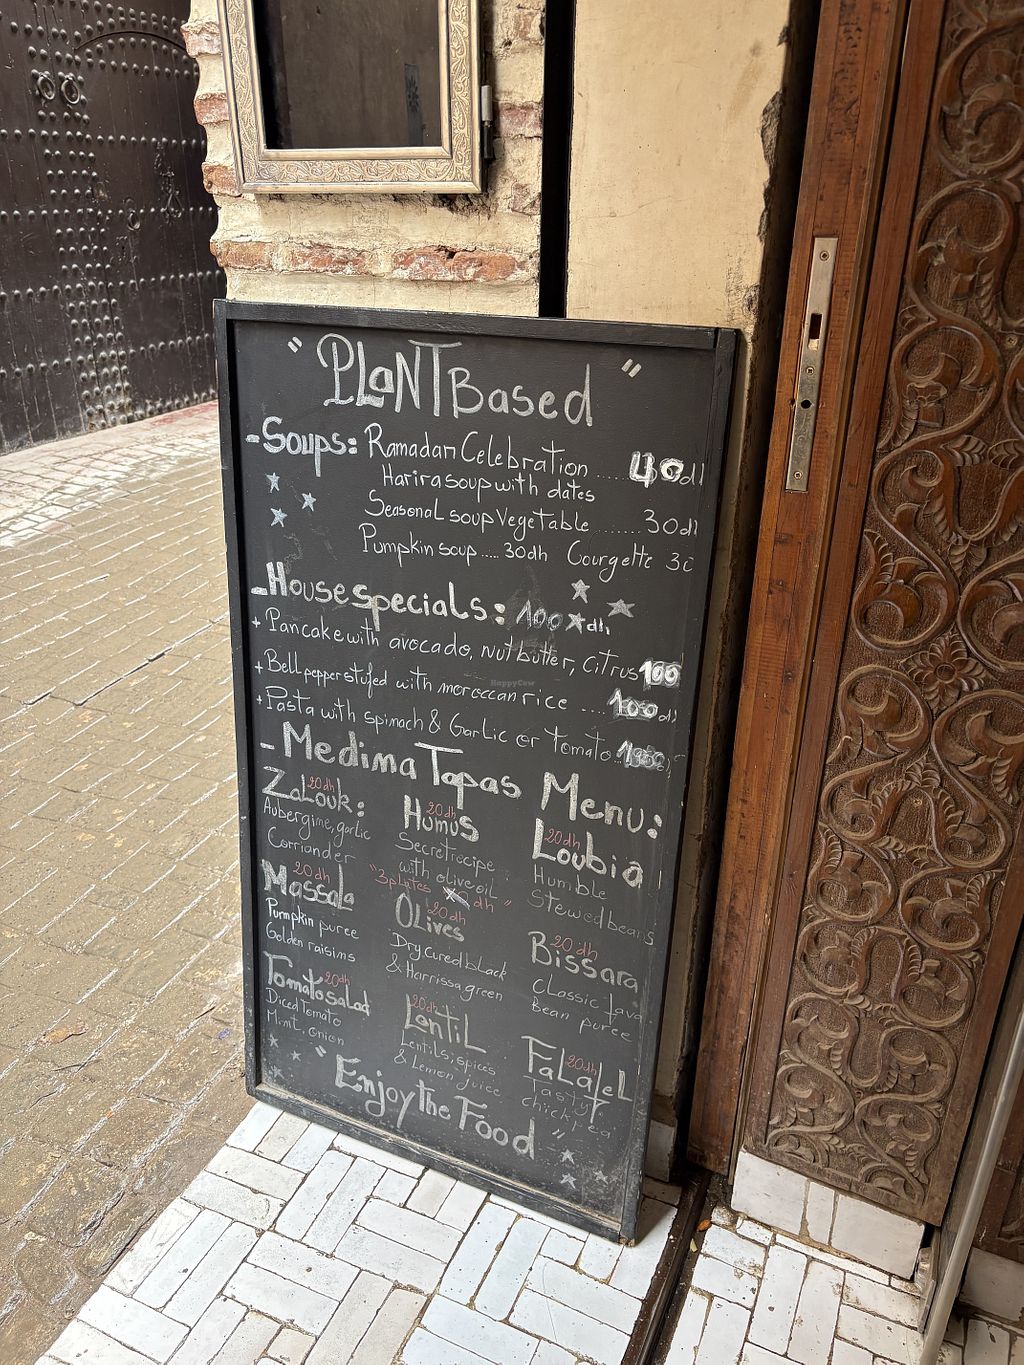 " PLANT Based "
- Soups: Ramadan Celebration ...... 40dh
Harira soup with dates
Seasonal soup Vegetable ....... 30dh
Pumpkin soup ..... 30dh Courgette 30
- House specials: 100 dh
+ Pancake with avocado, nut butter, Citrus 100
+ Bell pepper stufed with moroccan rice .... 100dh
+ Pasta with spinach & Garlic or tomato..
- Medima Tapas Menu:
20dh
Zalouk:
Aubergine, garlic
Corriander
20dh
Massala
Pumpkin puree
Golden raisins
20dh
Tomato salad
Diced Tomato
Mint, onion
20dh
Humus
Secret recipe
with olive oil
"3 plates dh"
20dh
Olives
Dry cured black
& Harrissa green
20dh
Lentil
Lentils, spices
& Lemon juice
20dh
Loubia
Humble
Stewed beans
20dh
Bissara
Classic fava
Bean puree
20dh
Falafel
Tasty
chick pea
" Enjoy the Food "
HappyCow